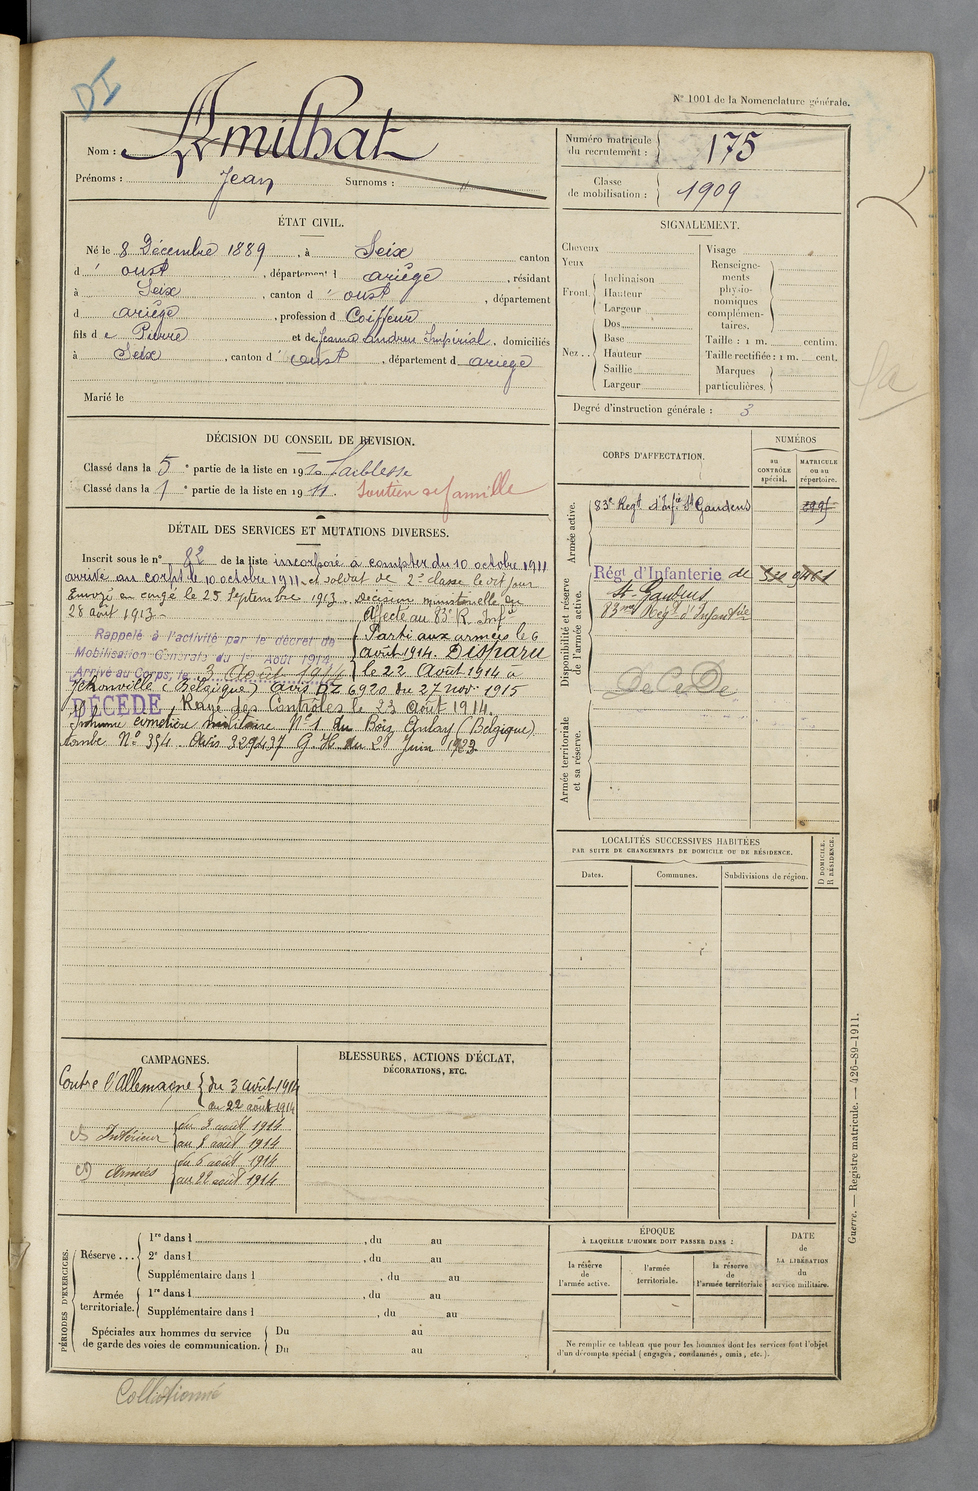 DI
N° 1001 de la Nomenclature générale.
Nom : Amilhat
Prénoms : Jean Surnoms : "
Numéro matricule du recrutement : 175
Classe de mobilisation : 1909
ÉTAT CIVIL.
Né le 8 Décembre 1889, à Seix canton
d' oust, département d ariège, résidant
à Seix, canton d' oust, département
d ariège, profession d Coiffeur
fils de Pierre et de Jeanne andrau Impérial, domiciliés
à Seix, canton d' oust, département d ariège
Marié le
SIGNALEMENT.
Cheveux
Yeux
Front
Inclinaison
Hauteur
Largeur
Dos
Nez
Base
Hauteur
Saillie
Largeur
Visage
Renseigne-
ments
physio-
nomiques
complémen-
taires.
Taille : 1 m. centim.
Taille rectifiée : 1 m. cent.
Marques
particulières.
Degré d'instruction générale : 3
DÉCISION DU CONSEIL DE REVISION.
Classé dans la 5e partie de la liste en 1910 Faiblesse
Classé dans la 1e partie de la liste en 1911. Soutien de famille
DÉTAIL DES SERVICES ET MUTATIONS DIVERSES.
Inscrit sous le n° 82 de la liste incorporé à compter du 10 octobre 1911
arrivé au corps le 10 octobre 1911 et soldat de 2e classe le dit jour
Envoyé en congé le 25 Septembre 1913. Décision ministérielle du
28 août 1913. Affecté au 83e R. Infie
Rappelé à l'activité par le décret de
Mobilisation Générale du 1er Août 1914
Arrivé au Corps, le 3 Août 1914
Parti aux armées le 6
août 1914. Disparu
le 22 Août 1914 à
Jehonville (Belgique) avis BZ 6920 du 27 nov. 1915
DÉCÉDÉ Rayé des Contrôles le 23 Août 1914.
Inhumé cimetière militaire N° 1 du Bois (Belgique)
tombe N° 354. Avis 329437 G. H. du 28 Juin 1923
CORPS D'AFFECTATION.
NUMÉROS
au CONTRÔLE spécial.
MATRICULE ou au répertoire.
Armée active.
83e Regt d'Infie St Gaudens
Disponibilité et réserve de l'armée active.
Régt d'Infanterie de
St Gaudens
83me Rég't d'Infanterie
Décédé
Armée territoriale et sa réserve.
LOCALITÉS SUCCESSIVES HABITÉES
PAR SUITE DE CHANGEMENTS DE DOMICILE OU DE RÉSIDENCE.
Dates.
Communes.
Subdivisions de région.
D DOMICILE.
R RÉSIDENCE.
CAMPAGNES.
Contre l'Allemagne du 3 août 1914
au 22 août 1914
Intérieur du 3 août 1914
Armées du 6 août 1914
au 22 août 1914
BLESSURES, ACTIONS D'ÉCLAT,
DÉCORATIONS, ETC.
PÉRIODES D'EXERCICES.
Réserve ...
1re dans l , du au
2e dans l , du au
Supplémentaire dans l , du au
Armée territoriale.
1re dans l , du au
Supplémentaire dans l , du au
Spéciales aux hommes du service
de garde des voies de communication.
Du au
Du au
ÉPOQUE
À LAQUELLE L'HOMME DOIT PASSER DANS :
la réserve de l'armée active.
l'armée territoriale.
la réserve de l'armée territoriale
DATE
de
LA LIBÉRATION
du
service militaire.
Ne remplir ce tableau que pour les hommes dont les services font l'objet
d'un décompte spécial (engagés, condamnés, omis, etc.).
Guerre. — Registre matricule. — 426-89-1911.
Collationné